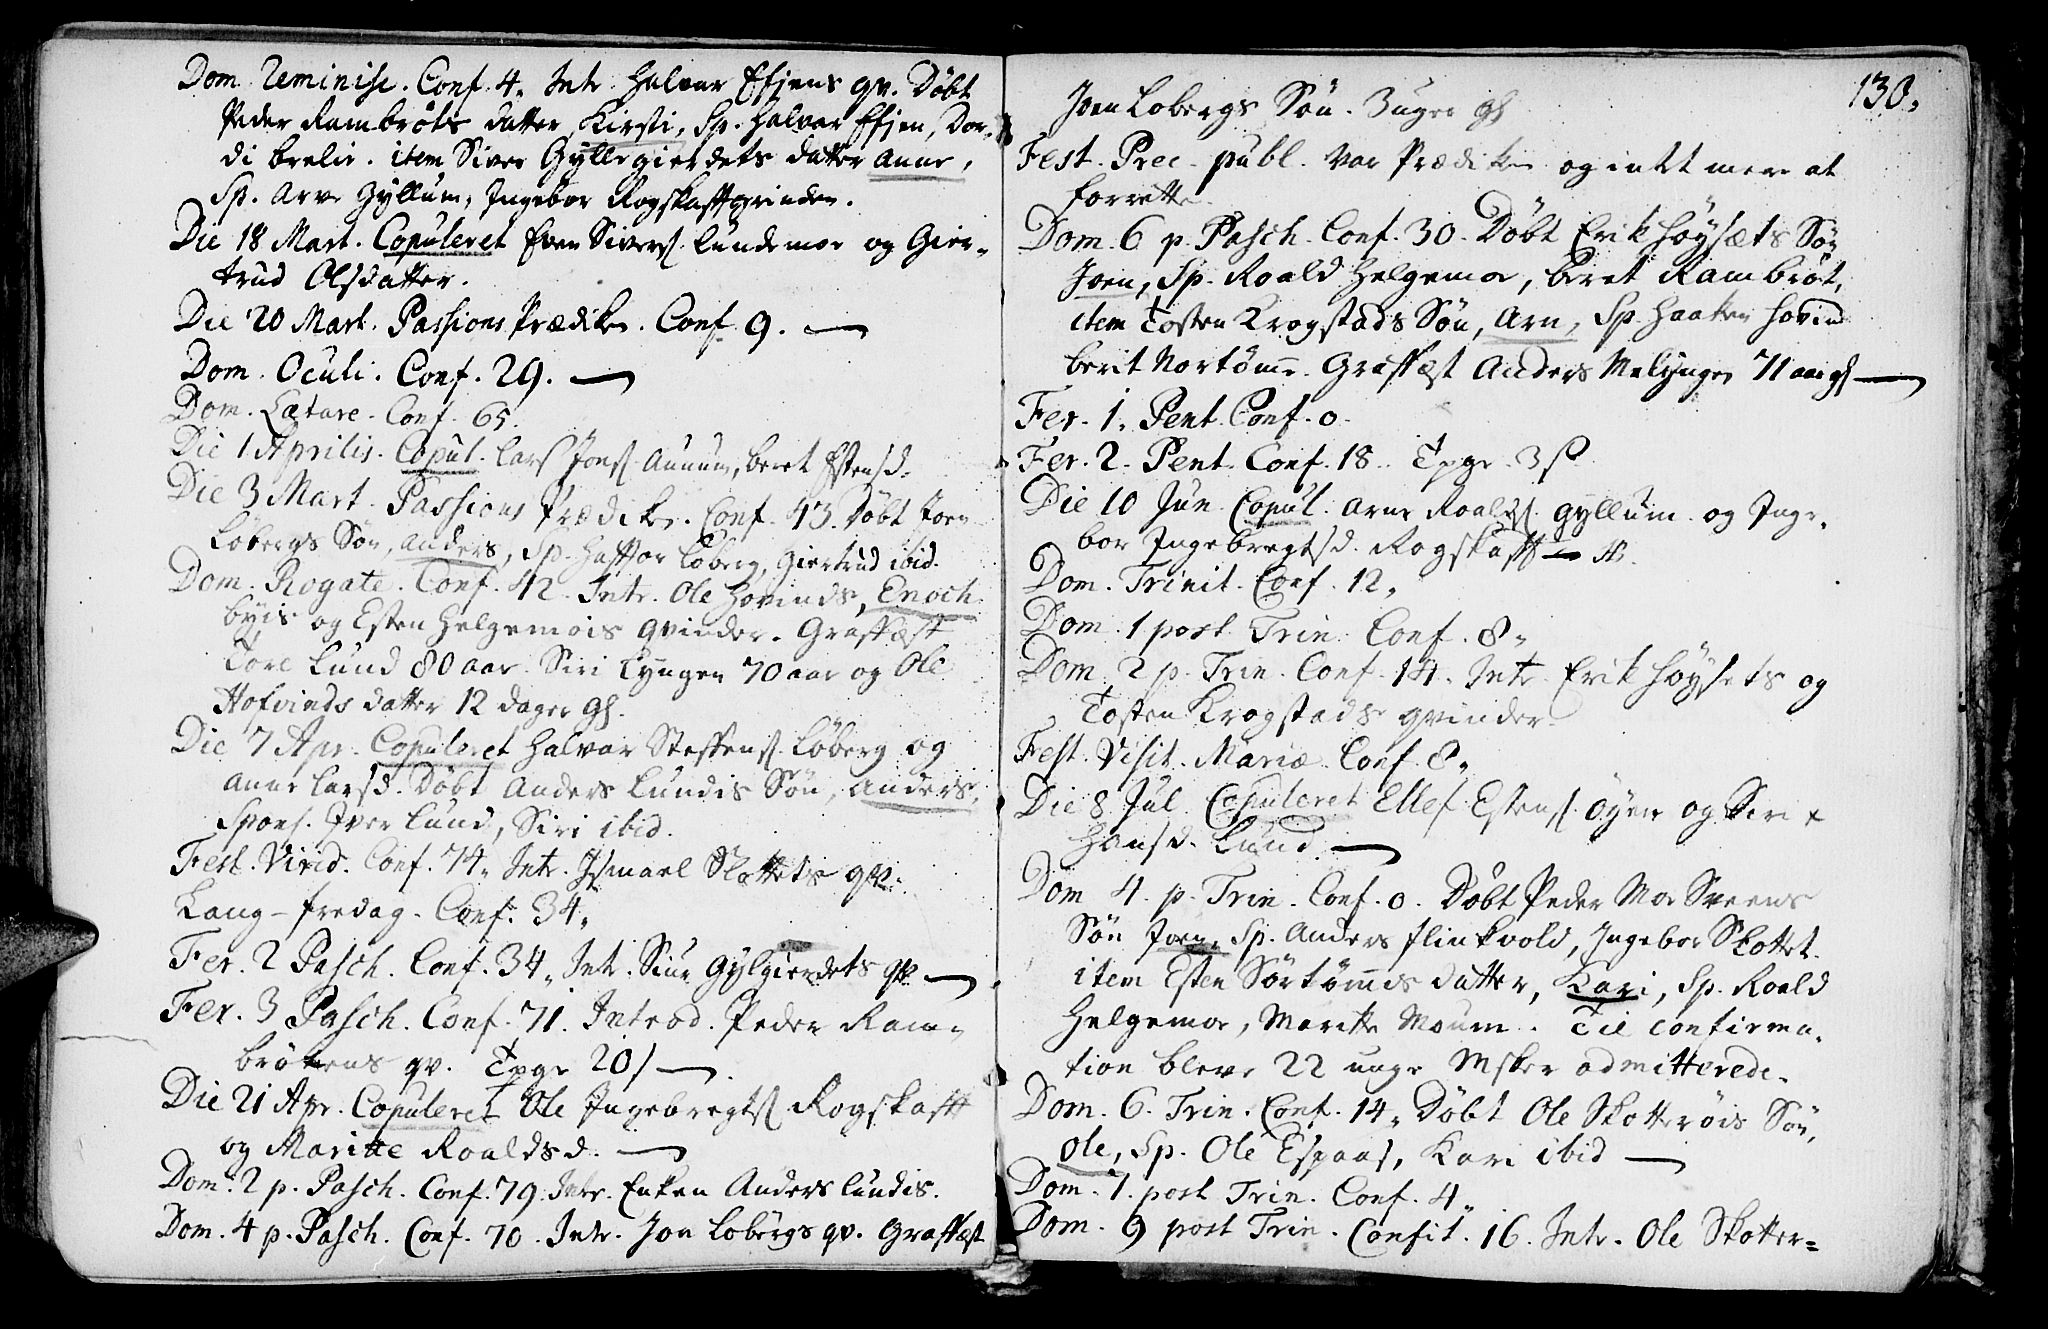 Dom. Reminise. Conf. 4. Intr. Halvar Efjens qv. Døbt
Peder Rambrøts datter Kirsti, Sp. Halvar Efjen, Dor-
di brelie. item Siver Gyllegierdets datter Anne,
Sp. Arve Gyllum, Ingebor Rogskafftqvinden.
Die 18 Mart. Copuleret Even Sivers. Lundemoe og Gier-
trud Olsdatter.
Die 20 Mart. Passions Prædiken. Conf. 9.
Dom. Oculi. Conf. 29.
Dom. Lætare. Conf. 65.
Die 1 Aprilis. Copul. Lars Jons. Aunum, beret Estensd.
Die 3 Mart. Passions Prædiken. Conf. 43. Døbt Joen
Løbergs Søn, Anders, Sp. Haffor Løberg, Giertrud ibid.
Dom. Rogate. Conf. 42. Intr. Ole Hovinds, Enoch
byis og Esten Helgemois qvinder. Graffæst
Tore Lund 80 aar. Siri Lyngen 70 aar og Ole
Hofvinds datter 12 dager gl.
Die 7 Apr. Copuleret Halvar Steffens. Løberg og
Anne Larsd. Døbt Anders Lundis Søn, Anders,
Spons. Iver Lund, Siri ibid.
Fest. Virid. Conf. 74. Intr. Ismael Slottets qv.
Lang-fredag. Conf. 34.
Fer. 2 Pasch. Conf. 34. Intr. Siur Gylgierdets qv
Fer. 3 Pasch. Conf. 71. Introd. Peder Ram-
brøtens qv. Tpgr 20
Die 21 Apr. Copuleret Ole Ingebregts. Rogskafft
og Maritte Roaldsd.
Dom. 2 p. Pasch. Conf. 79. Intr. Enken Anders Lundis.
Dom. 4 p. Pasch. Conf. 70. Intr. Jon Lobergs qv. Graffæst
130.
Joen Lobergs Søn. 3 uger gl
Fest. Prec. publ. var Prædiken og intet mere at
forrette.
Dom. 6 p. Pasch. Conf. 30. Døbt Erik Høysæts Søn
Joen, Sp. Roald Helgemoe, beret Rambrøt,
item Tosten Krogstads Søn, Arn, Sp. Haaken Hovin
berit Nortømme. Graffæst Anders Melynger 71 aar gl
Fer. 1. Pent. Conf. 0.
Fer. 2. Pent. Conf. 18. Tpgr. 3
Die 10 Jun Copul. Arne Roalds. Gyllum og Inge-
bor Ingebregtsd. Rogskafft
Dom. Trinit. Conf. 12.
Dom. 1 post Trin. Conf. 8.
Dom. 2 p. Trin. Conf. 14. Intr. Erik Høysets og
Tosten Krogstads qvinder
Fest. Visit. Mariæ. Conf. 8.
Die 8 Jul. Copuleret Ellef Estens. Øyen og Siri
Hansd. Lund.
Dom 4. p. Trin. Conf. 0. Døbt Peder Moe Sveens
Søn Joen, Sp. Anders Flinkvold, Ingebor Slottet.
item Esten Sørtømmis datter, Kari, Sp. Roald
Helgemoe, Maritte Moum. Til confirma-
tion bleve 22 unge Msker admitterede.
Dom. 6. Trin. Conf. 14. Døbt Ole Skotterøis Søn,
Ole, Sp. Ole Espaas, Kari ibid
Dom. 7. post Trin. Conf. 4.
Dom. 9 post Trin. Confit. 16. Intr. Ole Skotter=